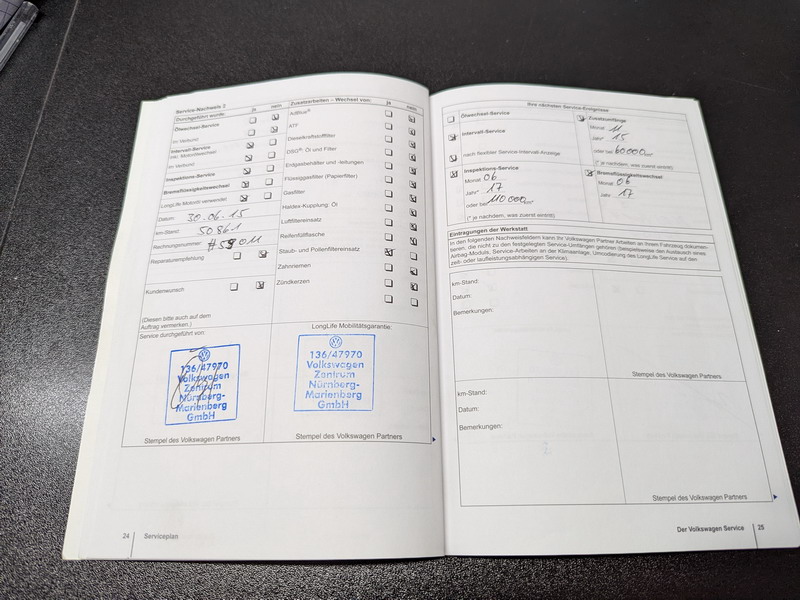 Service-Nachweis 2
Durchgeführt wurde: ja nein
Ölwechsel-Service
Im Verbund
Intervall-Service
inkl. Motorölwechsel
Im Verbund
Inspektions-Service
Bremsflüssigkeitswechsel
LongLife Motoröl verwendet
Datum: 30.06.15
km-Stand: 50861
Rechnungsnummer:
Reparaturempfehlung
Kundenwunsch
(Diesen bitte auch auf dem
Auftrag vermerken.)
Zusatzarbeiten – Wechsel von: ja nein
AdBlue®
ATF
Dieselkraftstofffilter
DSG®: Öl und Filter
Erdgasbehälter und -leitungen
Flüssiggasfilter (Papierfilter)
Gasfilter
Haldex-Kupplung: Öl
Luftfiltereinsatz
Reifenfüllflasche
Staub- und Pollenfiltereinsatz
Zahnriemen
Zündkerzen
Service durchgeführt von:
136/47970
Volkswagen
Zentrum
Nürnberg-
Marienberg
GmbH
Stempel des Volkswagen Partners
LongLife Mobilitätsgarantie:
136/47970
Volkswagen
Zentrum
Nürnberg-
Marienberg
GmbH
Stempel des Volkswagen Partners
24 Serviceplan
Ihre nächsten Service-Ereignisse
Ölwechsel-Service
Intervall-Service
nach flexibler Service-Intervall-Anzeige
Zusatzumfänge
Monat 11
Jahr* 15
oder bei 60000 km*
(* je nachdem, was zuerst eintritt)
Inspektions-Service
Monat 06
Jahr* 17
oder bei 110000 km*
(* je nachdem, was zuerst eintritt)
Bremsflüssigkeitswechsel
Monat 06
Jahr 17
Eintragungen der Werkstatt
In den folgenden Nachweisfeldern kann Ihr Volkswagen Partner Arbeiten an Ihrem Fahrzeug dokumen-
tieren, die nicht zu den festgelegten Service-Umfängen gehören (beispielsweise den Austausch eines
Airbag-Moduls, Service-Arbeiten an der Klimaanlage, Umcodierung des LongLife Service auf den
zeit- oder laufleistungsabhängigen Service).
km-Stand:
Datum:
Bemerkungen:
Stempel des Volkswagen Partners
km-Stand:
Datum:
Bemerkungen:
Stempel des Volkswagen Partners
Der Volkswagen Service 25